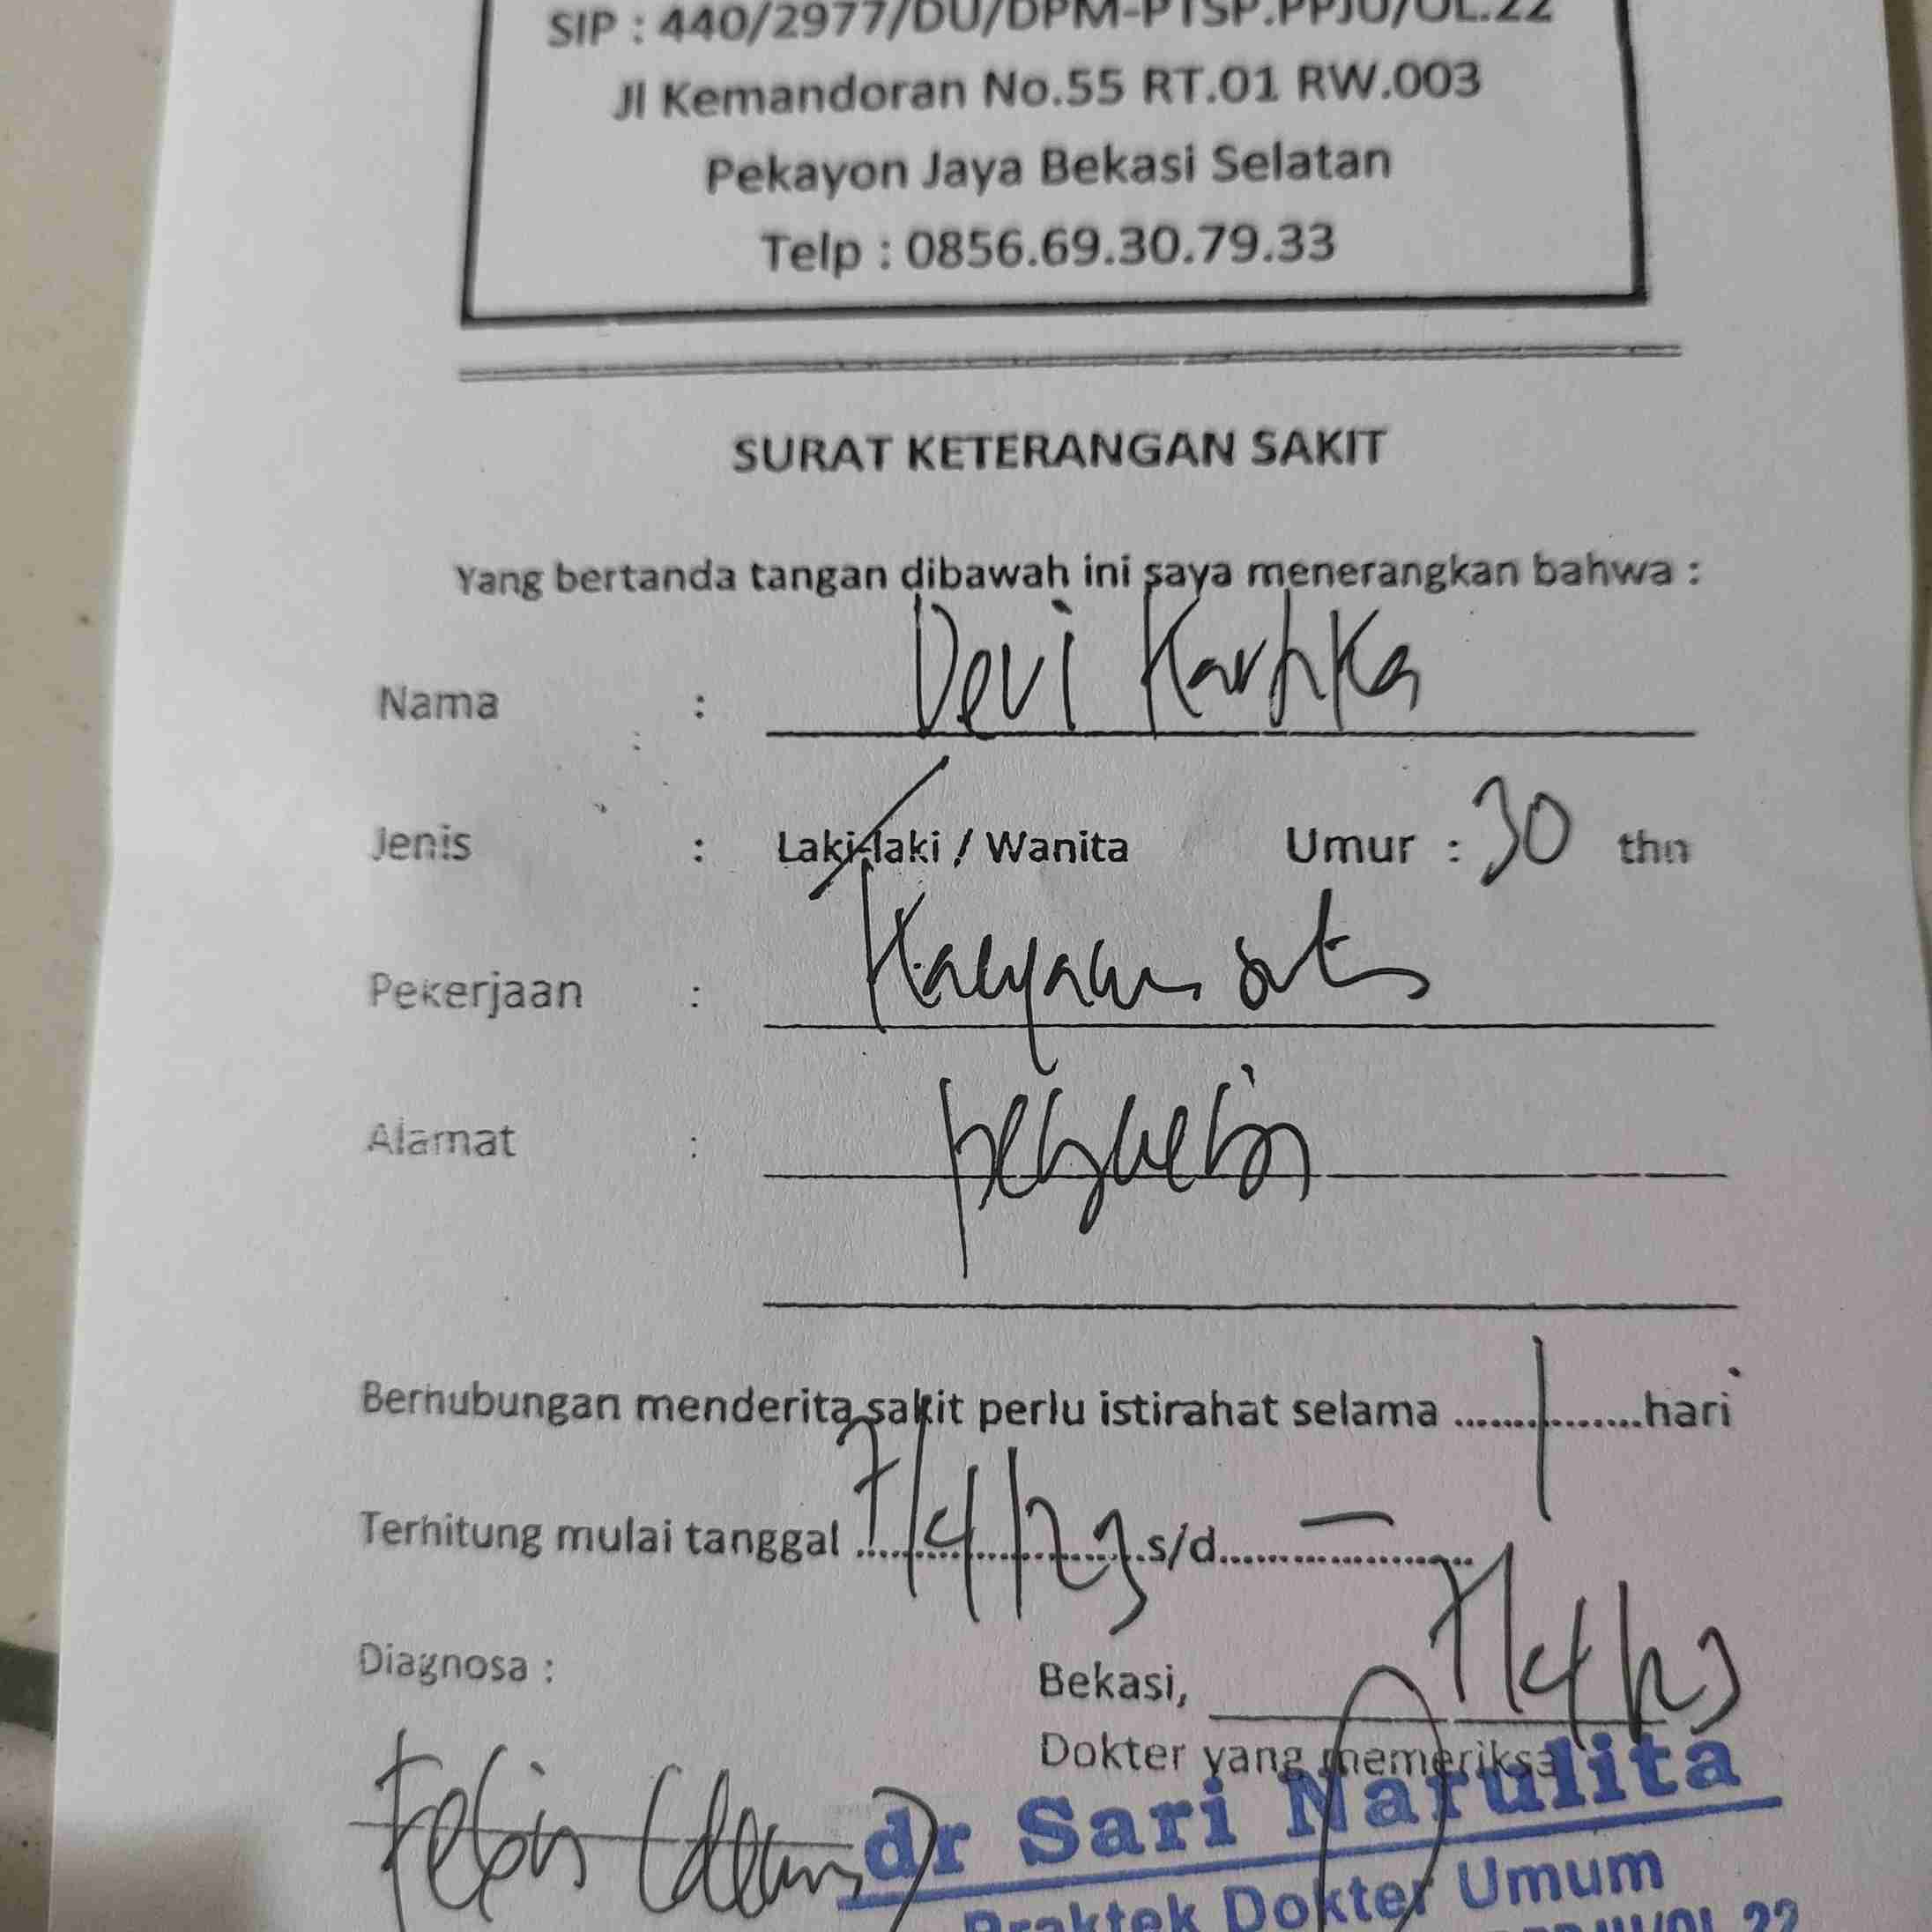 SIP : 440/2977/DU/DPM-PTSP.PPJU/OL.22
Jl Kemandoran No.55 RT.01 RW.003
Pekayon Jaya Bekasi Selatan
Telp : 0856.69.30.79.33
SURAT KETERANGAN SAKIT
Yang bertanda tangan dibawah ini saya menerangkan bahwa :
Nama : Devi Kartika
Jenis : Laki-laki / Wanita Umur : 30 thn
Pekerjaan : Karyawan
Alamat :
Berhubungan menderita sakit perlu istirahat selama ........1........hari
Terhitung mulai tanggal 7/4/23 s/d....—....
Diagnosa :
Bekasi, 7/4/23
Dokter yang memeriksa
Febris
dr Sari Narulita
Praktek Dokter Umum